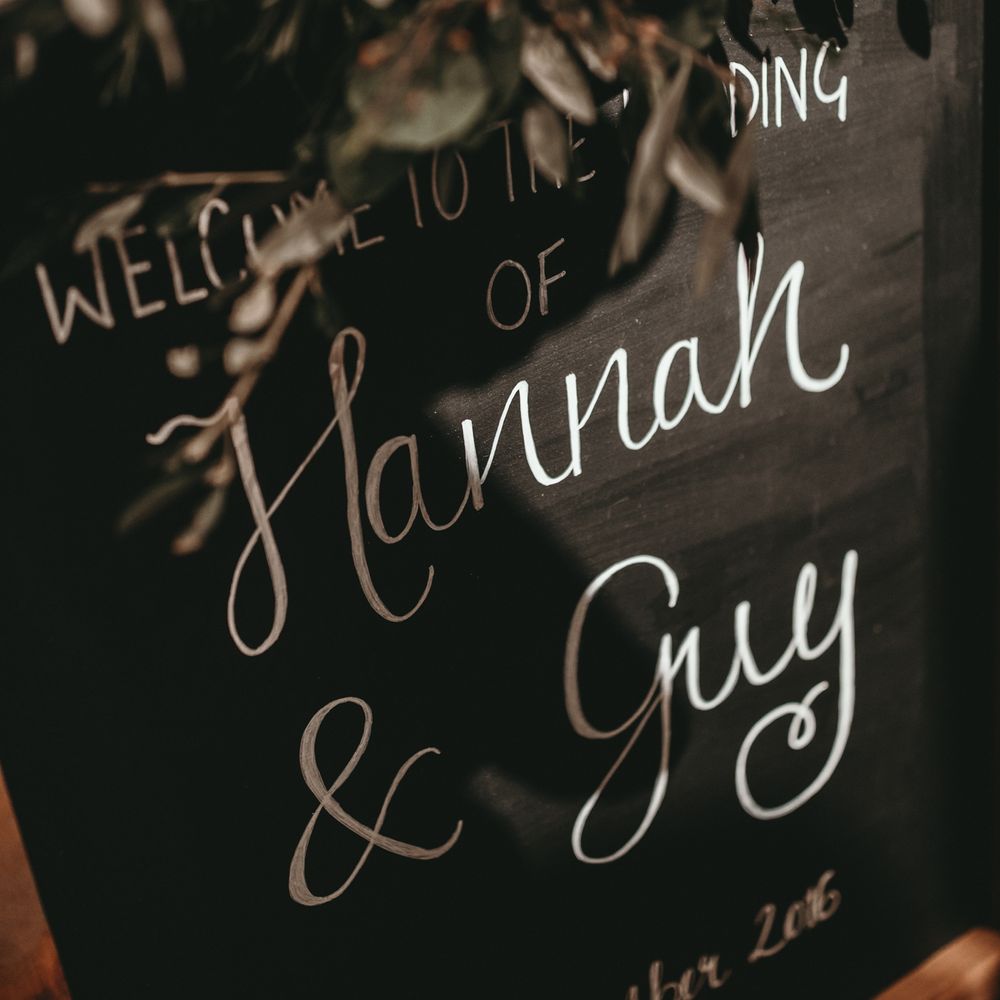 WELCOME TO THE WEDDING
OF
Hannah
& Guy
ber 2016